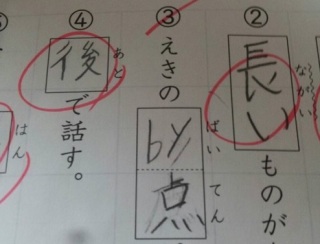 ② 長い ものが
ながい
③ えきの by点
ばいてん
④ 後 で話す。
あと
はん